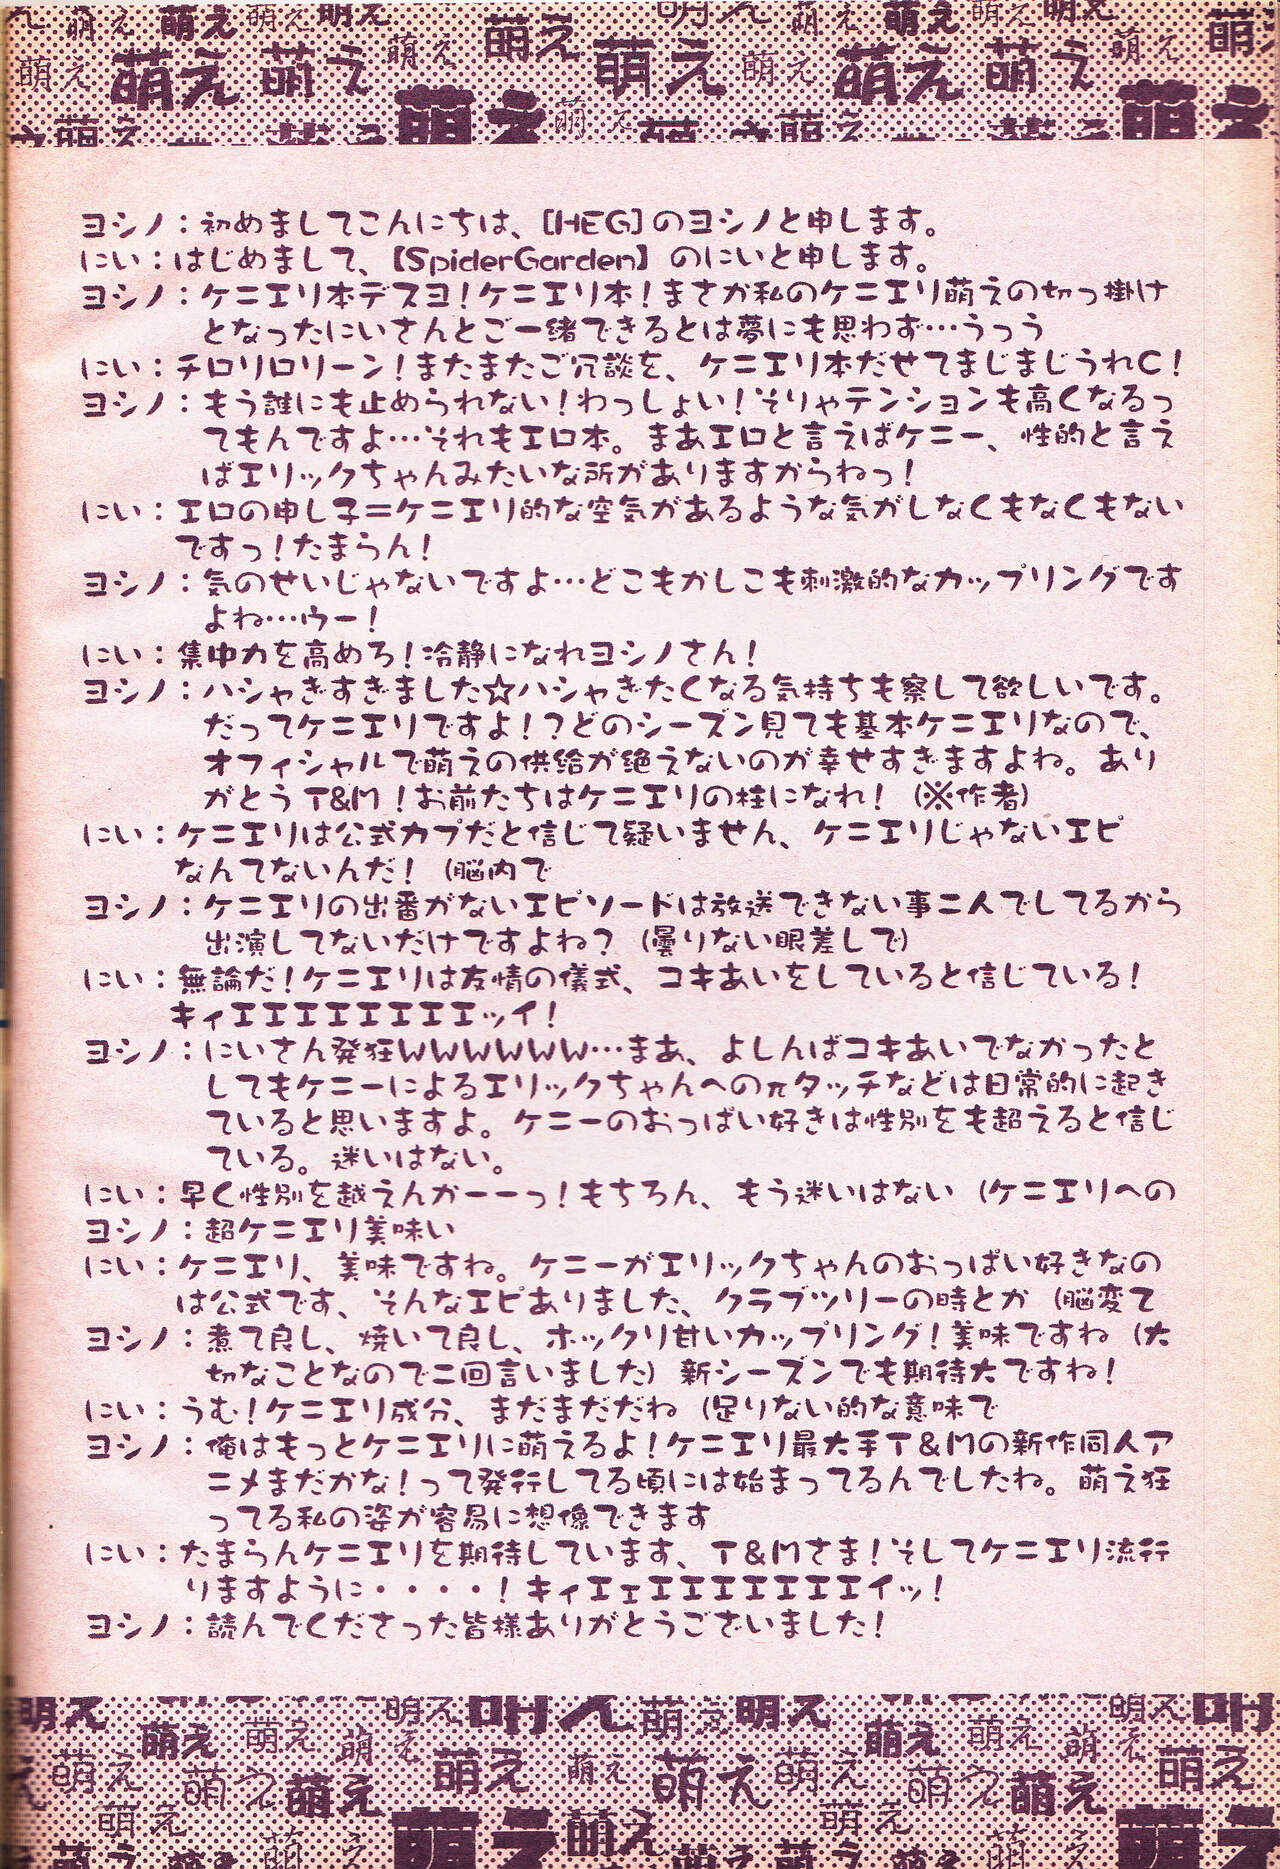 ヨシノ：初めましてこんにちは、[HEG]のヨシノと申します。
にい：はじめまして、【SpiderGarden】のにいと申します。
ヨシノ：ケニエリ本デスヨ！ケニエリ本！まさか私のケニエリ萌えの切っ掛け
となったにいさんとご一緒できるとは夢にも思わず…うっう
にい：チロリロリーン！またまたご冗談を、ケニエリ本だせてまじまじうれC！
ヨシノ：もう誰にも止められない！わっしょい！そりゃテンションも高くなるっ
てもんですよ…それもエロ本。まあエロと言えばケニー、性的と言え
ばエリックちゃんみたいな所がありますからねっ！
にい：エロの申し子＝ケニエリ的な空気があるような気がしなくもなくもない
ですっ！たまらん！
ヨシノ：気のせいじゃないですよ…どこもかしこも刺激的なカップリングです
よね…ウー！
にい：集中力を高めろ！冷静になれヨシノさん！
ヨシノ：ハシャぎすぎました☆ハシャぎたくなる気持ちも察して欲しいです。
だってケニエリですよ！？どのシーズン見ても基本ケニエリなので、
オフィシャルで萌えの供給が絶えないのが幸せすぎますよね。あり
がとうT&M！お前たちはケニエリの柱になれ！（※作者）
にい：ケニエリは公式カプだと信じて疑いません、ケニエリじゃないエピ
なんてないんだ！（脳内で
ヨシノ：ケニエリの出番がないエピソードは放送できない事二人でしてるから
出演してないだけですよね？（曇りない眼差しで）
にい：無論だ！ケニエリは友情の儀式、コキあいをしていると信じている！
キィエエエエエエエエッイ！
ヨシノ：にいさん発狂wwwwww…まあ、よしんばコキあいでなかったと
してもケニーによるエリックちゃんへのπタッチなどは日常的に起き
ていると思いますよ。ケニーのおっぱい好きは性別をも超えると信じ
ている。迷いはない。
にい：早く性別を越えんかーーっ！もちろん、もう迷いはない（ケニエリへの
ヨシノ：超ケニエリ美味い
にい：ケニエリ、美味ですね。ケニーがエリックちゃんのおっぱい好きなの
は公式です、そんなエピありました、クラブツリーの時とか（脳変て
ヨシノ：煮て良し、焼いて良し、ホックリ甘いカップリング！美味ですね（大
切なことなので二回言いました）新シーズンでも期待大ですね！
にい：うむ！ケニエリ成分、まだまだだね（足りない的な意味で
ヨシノ：俺はもっとケニエリに萌えるよ！ケニエリ最大手T&Mの新作同人ア
ニメまだかな！って発行してる頃には始まってるんでしたね。萌え狂
ってる私の姿が容易に想像できます
にい：たまらんケニエリを期待しています、T&Mさま！そしてケニエリ流行
りますように・・・・！キィエェエエエエエエエイッ！
ヨシノ：読んでくださった皆様ありがとうございました！